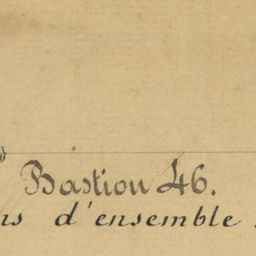 Bastion 46.
ns d'ensemble